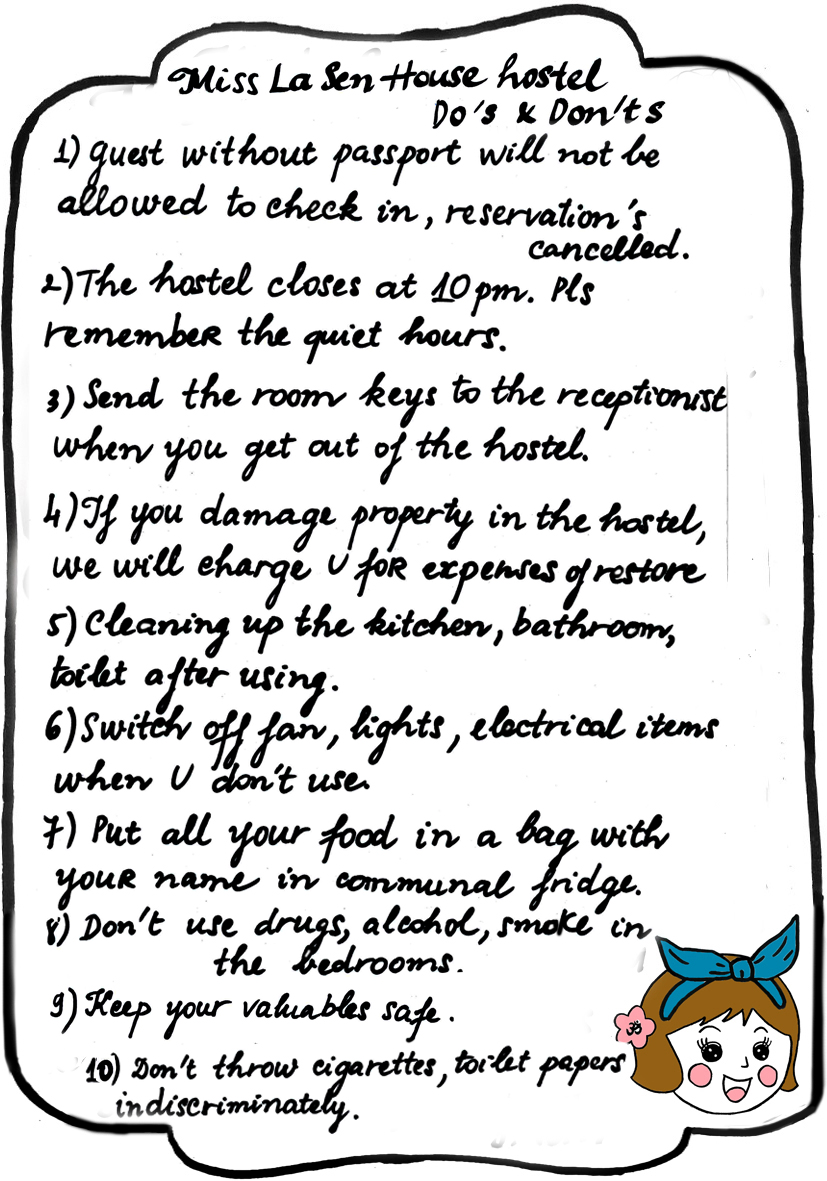 Miss La Sen House hostel
Do's & Don'ts
1) guest without passport will not be
allowed to check in, reservation's
cancelled.
2) The hostel closes at 10pm. Pls
remember the quiet hours.
3) Send the room keys to the receptionist
when you get out of the hostel.
4) If you damage property in the hostel,
we will charge U for expenses of restore
5) Cleaning up the kitchen, bathroom,
toilet after using.
6) Switch off fan, lights, electrical items
when U don't use.
7) Put all your food in a bag with
your name in communal fridge.
8) Don't use drugs, alcohol, smoke in
the bedrooms.
9) Keep your valuables safe.
10) Don't throw cigarettes, toilet papers
indiscriminately.